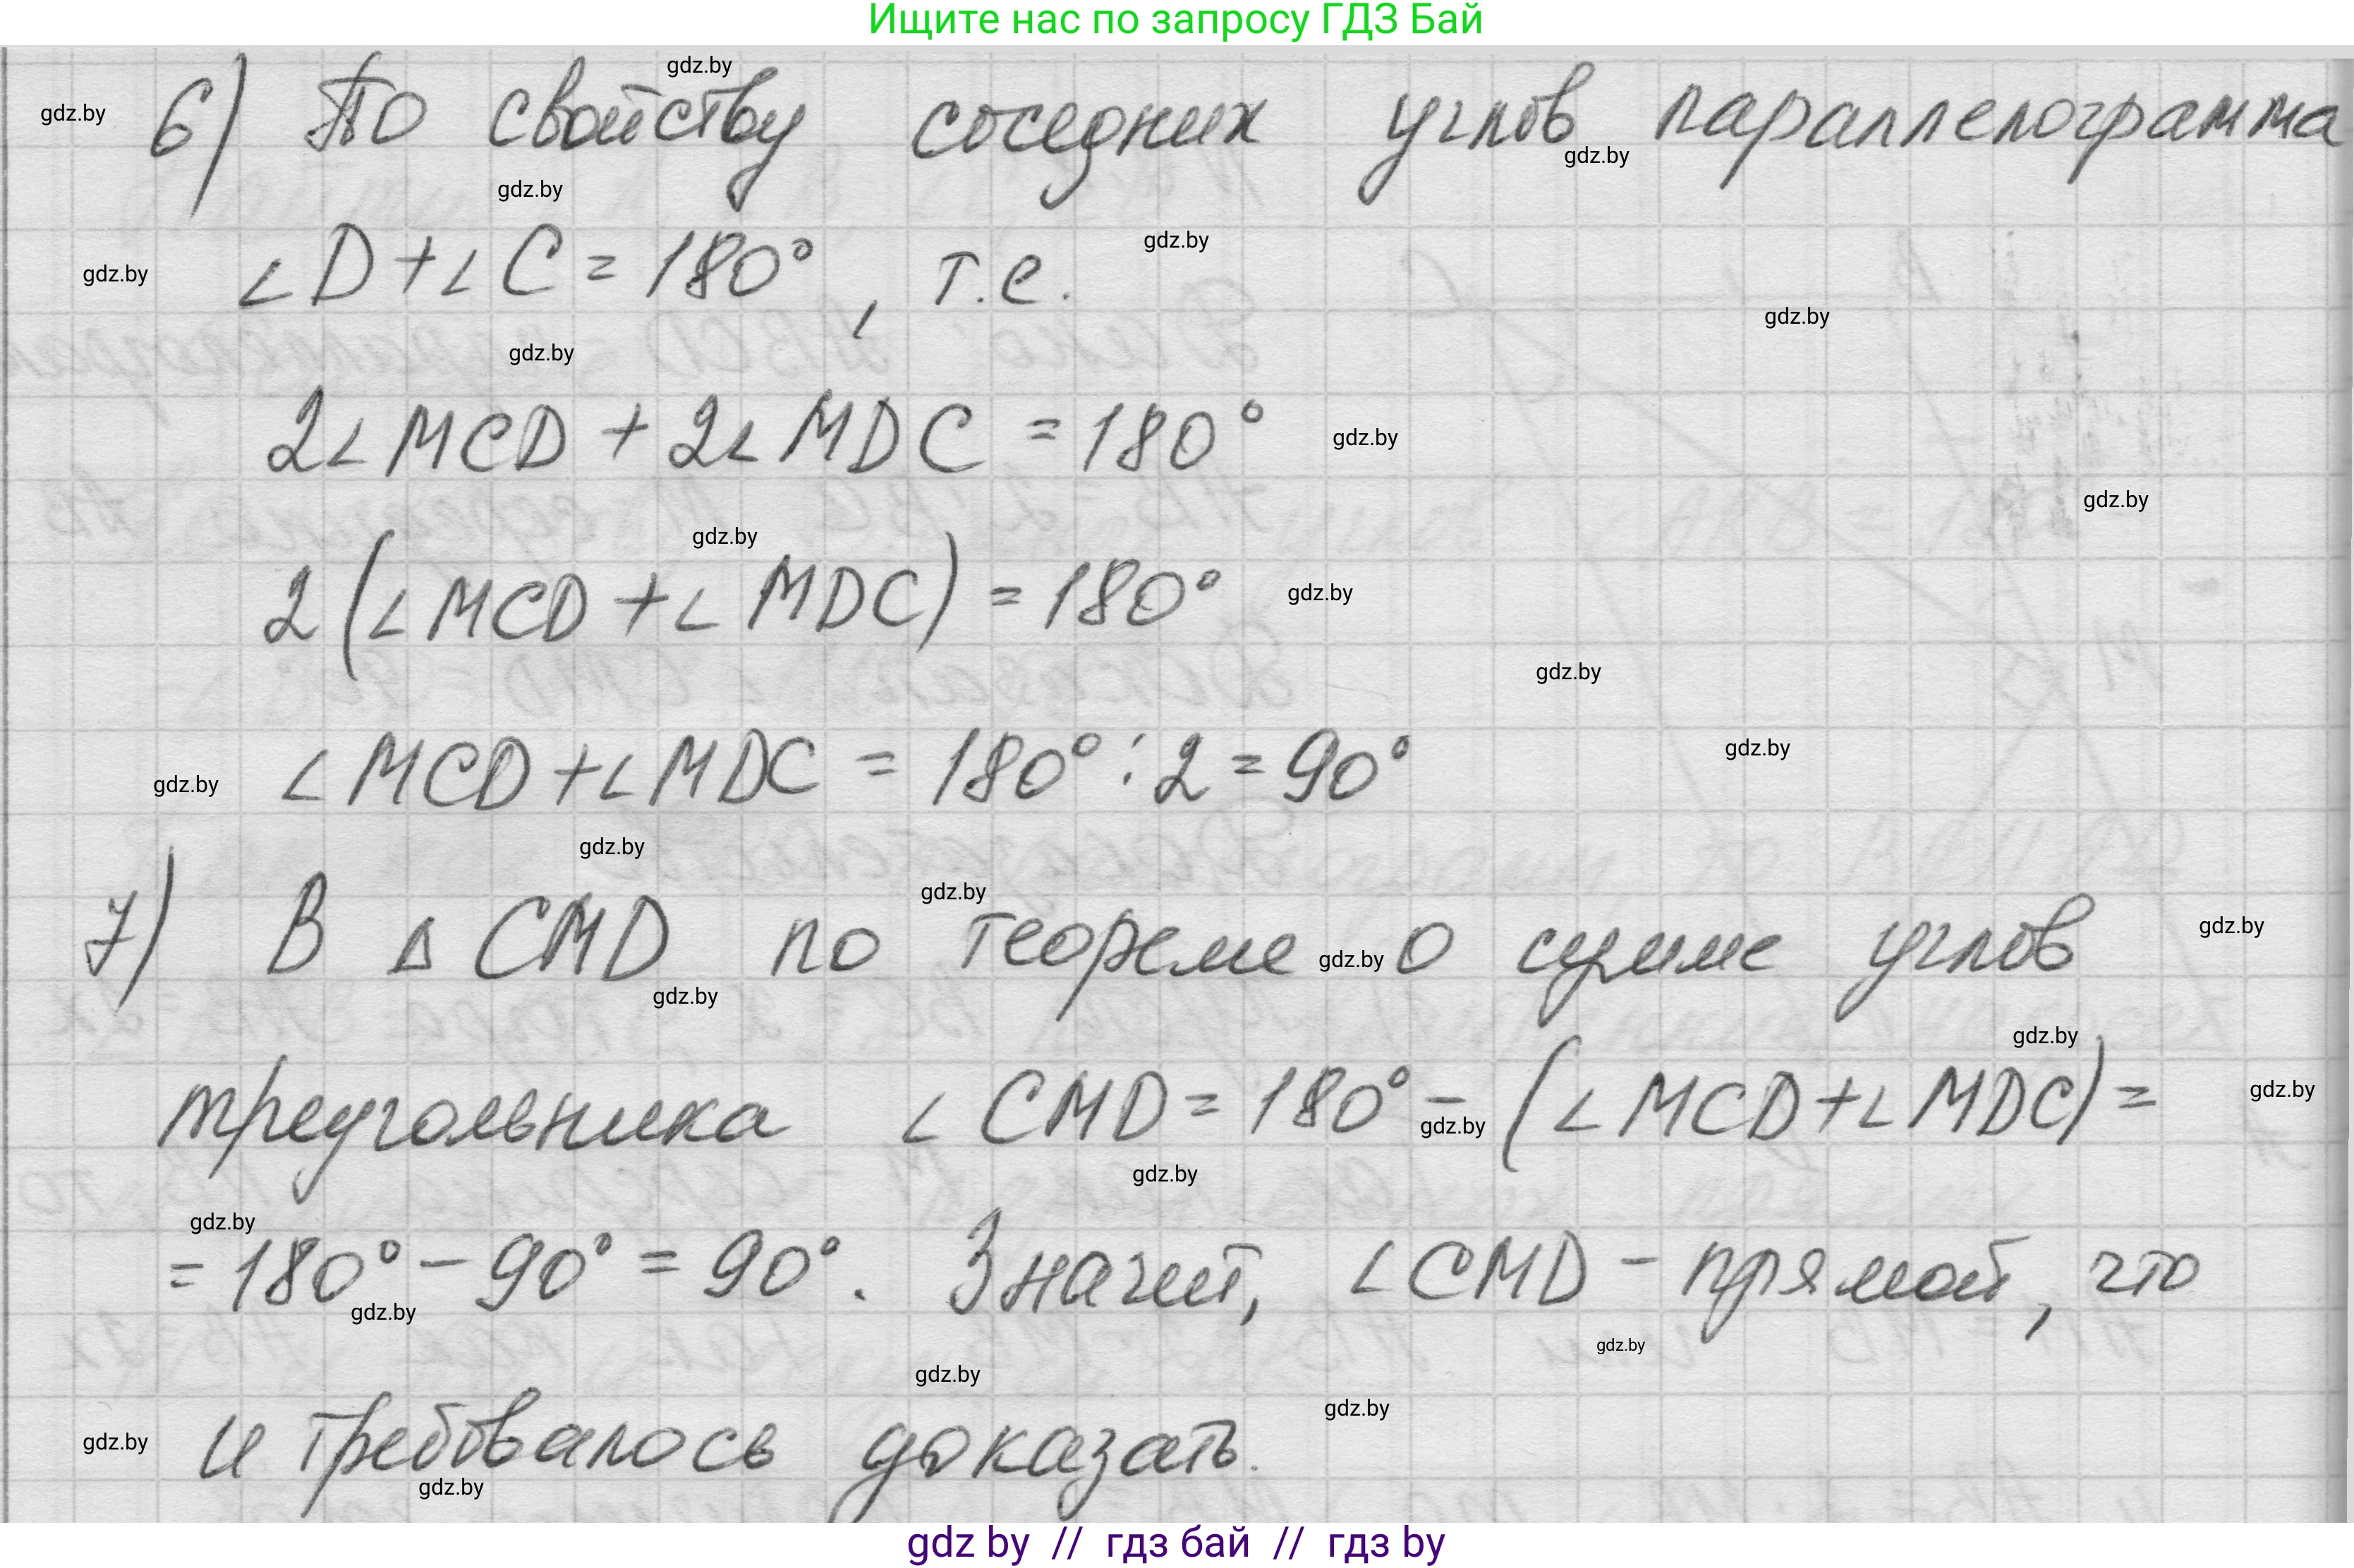 Ищите нас по запросу ГДЗ Бай
gdz.by
gdz.by
6) По свойству соседних углов параллелограмма
gdz.by
gdz.by
gdz.by
gdz.by
∠D+∠C=180°, т.е.
gdz.by
gdz.by
2∠MCD + 2∠MDC = 180°
gdz.by
gdz.by
gdz.by
2(∠MCD+∠MDC) = 180°
gdz.by
gdz.by
gdz.by
gdz.by
∠MCD+∠MDC = 180°:2=90°
gdz.by
gdz.by
7) В ΔCMD по теореме о сумме углов
gdz.by
gdz.by
gdz.by
gdz.by
треугольника ∠CMD=180°-(∠MCD+∠MDC)=
gdz.by
gdz.by
gdz.by
gdz.by
=180°-90°=90°. Значит, ∠CMD-прямой, что
gdz.by
gdz.by
gdz.by
gdz.by
и требовалось доказать.
gdz.by
gdz.by
gdz by // гдз бай // гдз by